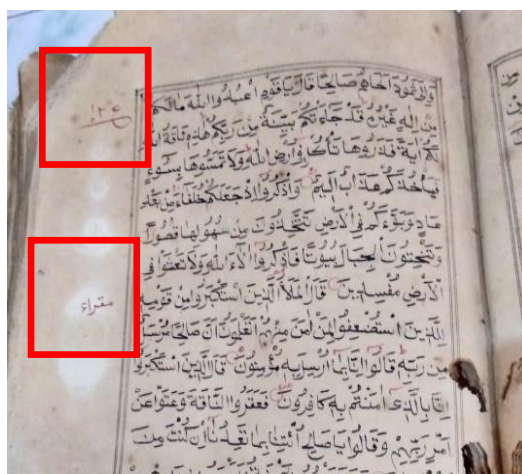 وَإِلَى ثَمُودَ أَخَاهُمْ صَالِحًا قَالَ يَا قَوْمِ اعْبُدُوا اللَّهَ مَا لَكُمْ
مِنْ إِلَهٍ غَيْرُهُ قَدْ جَاءَتْكُمْ بَيِّنَةٌ مِنْ رَبِّكُمْ هَذِهِ نَاقَةُ اللَّهِ
لَكُمْ آيَةً فَذَرُوهَا تَأْكُلْ فِي أَرْضِ اللَّهِ وَلَا تَمَسُّوهَا بِسُوءٍ
فَيَأْخُذَكُمْ عَذَابٌ أَلِيمٌ وَاذْكُرُوا إِذْ جَعَلَكُمْ خُلَفَاءَ مِنْ بَعْدِ
عَادٍ وَبَوَّأَكُمْ فِي الْأَرْضِ تَتَّخِذُونَ مِنْ سُهُولِهَا قُصُورًا
وَتَنْحِتُونَ الْجِبَالَ بُيُوتًا فَاذْكُرُوا آلَاءَ اللَّهِ وَلَا تَعْثَوْا فِي
الْأَرْضِ مُفْسِدِينَ قَالَ الْمَلَأُ الَّذِينَ اسْتَكْبَرُوا مِنْ قَوْمِهِ
مقراء
لِلَّذِينَ اسْتُضْعِفُوا لِمَنْ آمَنَ مِنْهُمْ أَتَعْلَمُونَ أَنَّ صَالِحًا مُرْسَلٌ
مِنْ رَبِّهِ قَالُوا إِنَّا بِمَا أُرْسِلَ بِهِ مُؤْمِنُونَ قَالَ الَّذِينَ اسْتَكْبَرُوا
إِنَّا بِالَّذِي آمَنْتُمْ بِهِ كَافِرُونَ فَعَقَرُوا النَّاقَةَ وَعَتَوْا عَنْ
أَمْرِ رَبِّهِمْ وَقَالُوا يَا صَالِحُ ائْتِنَا بِمَا تَعِدُنَا إِنْ كُنْتَ مِنَ